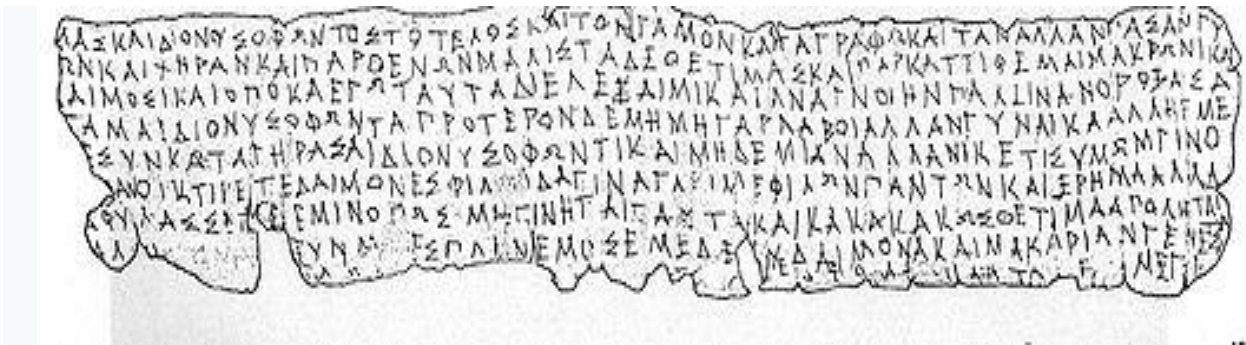 ΜΑΣΚΑΙΔΙΟΝΥΣΟΦΩΝΤΟΣΤΟΤΕΛΟΣΚΑΙΤΟΝΓΑΜΟΝΚΑΤΑΓΡΑΦΩΚΑΙΤΑΝΑΛΛΑΝΠΑΣΑΝΓΥ
ΩΝΚΑΙΧΗΡΑΝΚΑΙΠΑΡΘΕΝΩΝΜΑΛΙΣΤΑΔΕΘΕΤΙΜΑΣΚΑΙΠΑΡΚΑΤΤΙΘΕΜΑΙΜΑΚΡΩΝΙΚΑΙ
ΔΑΙΜΟΣΙΚΑΙΟΠΟΚΑΕΓΩΤΑΥΤΑΔΙΕΛΕΞΑΙΜΙΚΑΙΑΝΑΓΝΟΙΗΝΠΑΛΙΝΑΝΟΡΟΞΑΣΑ
ΓΑΜΑΙΔΙΟΝΥΣΟΦΩΝΤΑΠΡΟΤΕΡΟΝΔΕΜΗΜΗΓΑΡΛΑΒΟΙΑΛΛΑΝΓΥΝΑΙΚΑΑΛΛΗΕΜΕ
ΕΣΥΝΚΑΤΑΓΗΡΑΣΑΙΔΙΟΝΥΣΟΦΩΝΤΙΚΑΙΜΗΔΕΜΙΑΝΑΛΛΑΝΙΚΕΤΙΣΥΜΩΜΓΙΝΟ
ΑΝΟΙΚΤΙΡΕΤΕΔΑΙΜΟΝΕΣΦΙΛΟΙΔΑΓΙΝΑΓΑΡΙΜΕΦΙΛΩΝΠΑΝΤΩΝΚΑΙΕΡΗΜΑΑΛΛΑ
ΦΥΛΑΣΣΕΤΕΕΜΙΝΟΠΩΣΜΗΓΙΝΗΤΑΙΤΑΥΤΑΚΑΙΚΑΚΑΚΑΚΩΣΘΕΤΙΜΑΑΠΟΛΗΤΑΙ
ΕΣΠΛΗΝΕΜΟΣΕΜΕΔΕΕΥΔΑΙΜΟΝΑΚΑΙΜΑΚΑΡΙΑΝΓΕΝΕΣ